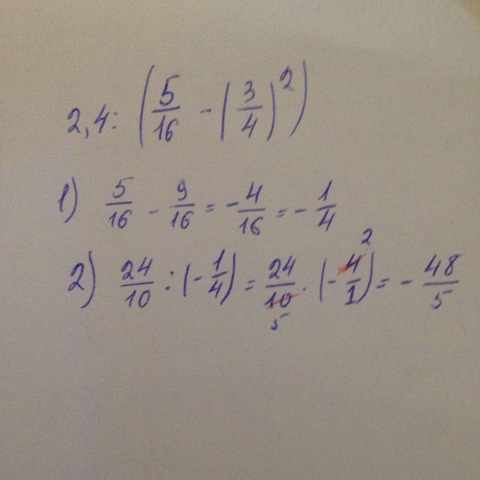 2,4 : (5/16 - (3/4)^2)
1) 5/16 - 9/16 = -4/16 = -1/4
2) 24/10 : (-1/4) = 24/10 5 · (-4/1 2) = -48/5